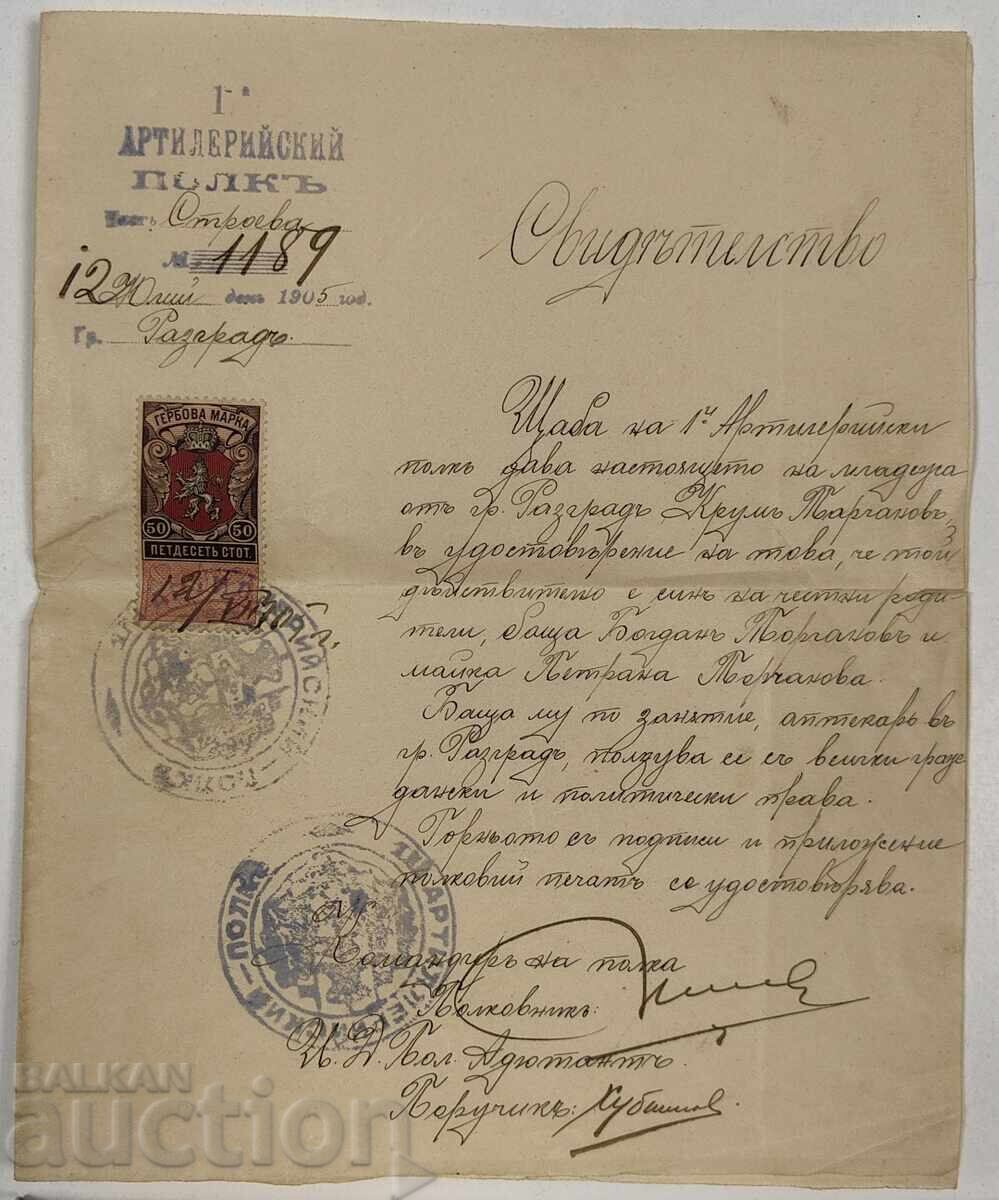 1й
АРТИЛЕРИЙСКИЙ
ПОЛКЪ
Часть Строева
№ 1189
12 Юлий день 1905 год.
Гр. Разградъ.
Свидѣтелство
ГЕРБОВА МАРКА
50 50
ПЕТДЕСЕТЬ СТОТ.
Щаба на 1й Артилерийски
полкъ дава настоящето на младежа
отъ гр. Разградъ Крумъ Торчановъ,
въ удостовѣрение на това, че той
дѣйствително е синъ на честни роди-
тели, баща Богданъ Торчановъ и
майка Петрана Торчанова.
Баща му по занятие, аптекарь въ
гр. Разградъ, ползува се съ всички граж-
дански и политически права.
Горньото съ подписи и приложение
полковий печатъ се удостовѣрява.
Командиръ на полка
Полковникъ:
И. Д. Пол. Адютантъ
Поручикъ:
АРТИЛЕРИЙСКИЙ ПОЛКЪ
BALKAN
auction